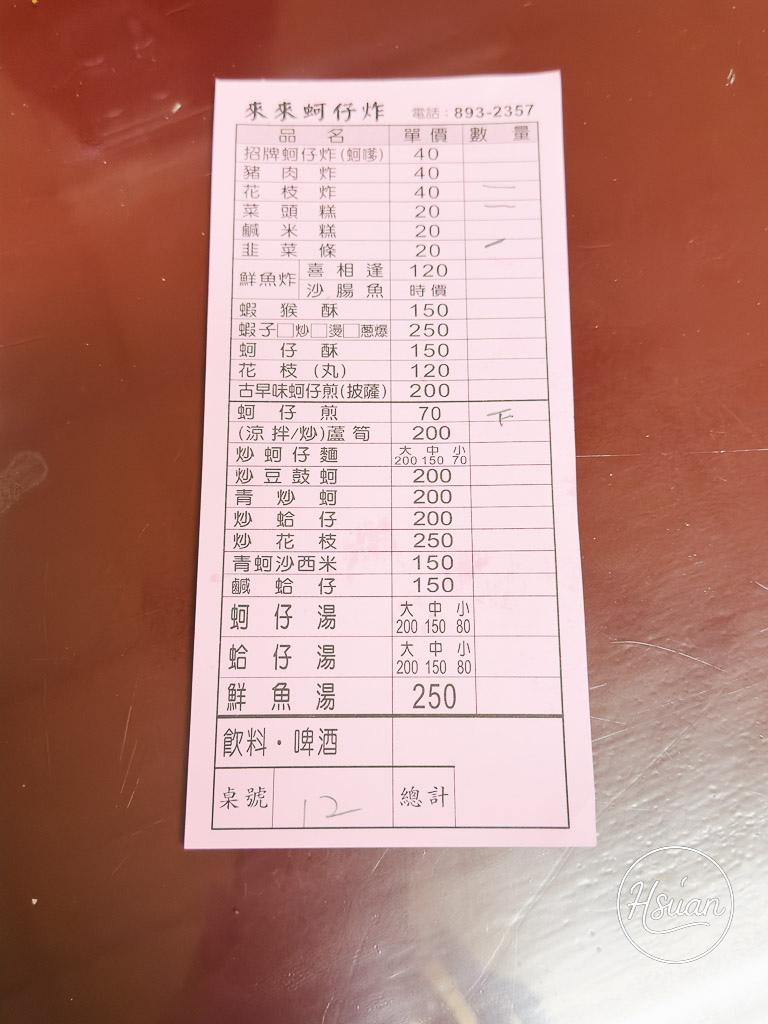 來來蚵仔炸 電話：893-2357
品名 單價 數量
招牌蚵仔炸(蚵嗲) 40
豬肉炸 40
花枝炸 40 二
菜頭糕 20 二
鹹米糕 20
韭菜條 20 一
鮮魚炸 喜相逢 120
沙腸魚 時價
蝦猴酥 150
蝦子□炒□燙□蔥爆 250
蚵仔酥 150
花枝(丸) 120
古早味蚵仔煎(披薩) 200
蚵仔煎 70 下
(涼拌/炒)蘆筍 200
炒蚵仔麵 大 中 小
200 150 70
炒豆鼓蚵 200
青炒蚵 200
炒蛤仔 200
炒花枝 250
青蚵沙西米 150
鹹蛤仔 150
蚵仔湯 大 中 小
200 150 80
蛤仔湯 大 中 小
200 150 80
鮮魚湯 250
飲料·啤酒
桌號 12 總計
Hsuan